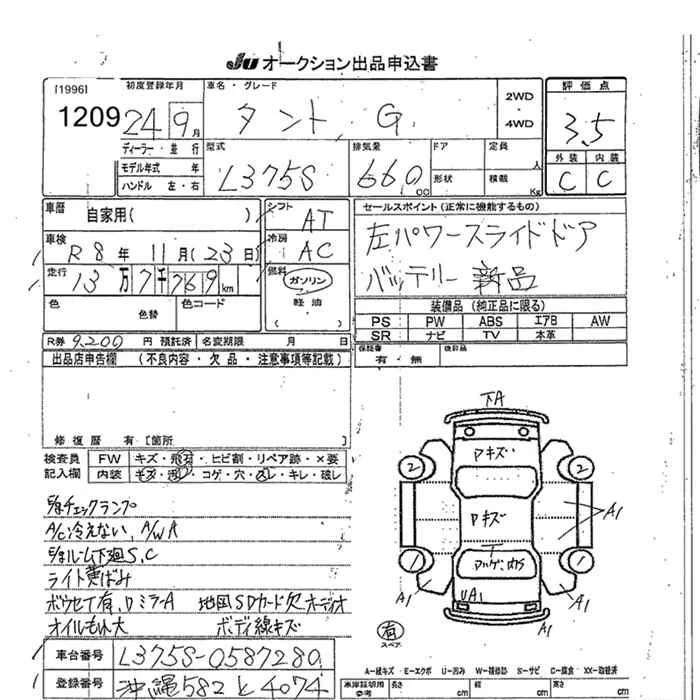 JU オークション出品申込書
[1996]
1209
初度登録年月
24年9月
車名・グレード
タント G
2WD・4WD
評価点
3.5
外装 内装
C C
ディーラー・並行
モデル年式 年
ハンドル 左・右
型式
L375S
排気量
660 CC
ドア
形状
定員 人
積載 Kg
車歴 自家用( )
シフト AT
車検 R8年 11月(23日)
冷房 AC
走行 13万7千769km
燃料 ガソリン
軽油
( )
色 色替 色コード
セールスポイント(正常に機能するもの)
左パワースライドドア
バッテリー新品
装備品(純正品に限る)
PS PW ABS エアB AW
SR ナビ TV 本革
保証書 有・無
後日品
R券 9,200 円 預託済 名変期限 月 日
出品店申告欄 (不良内容・欠品・注意事項等記載)
修復歴 有 [箇所
検査員記入欄
FW キズ・飛石・ヒビ割・リペア跡・×要
内装 キズ・汚レ・コゲ・穴・スレ・キレ・破レ
E/gチェックランプ
A/C冷えない、A/W A
ライト黄ばみ
地図SDカード欠 オーディオ
オイルもれ大 ボディ線キズ
下A
Pキズ
Pキズ
2 2
A1
A1
UA1
A1
A1
有 スペア
車台番号 L375S-0587280
登録番号 沖縄582と4074
A−線キズ・E−エクボ U−凹み W−補修跡 S−サビ C−腐食・XX−取替済
車庫証明用参考 長さ cm cm cm